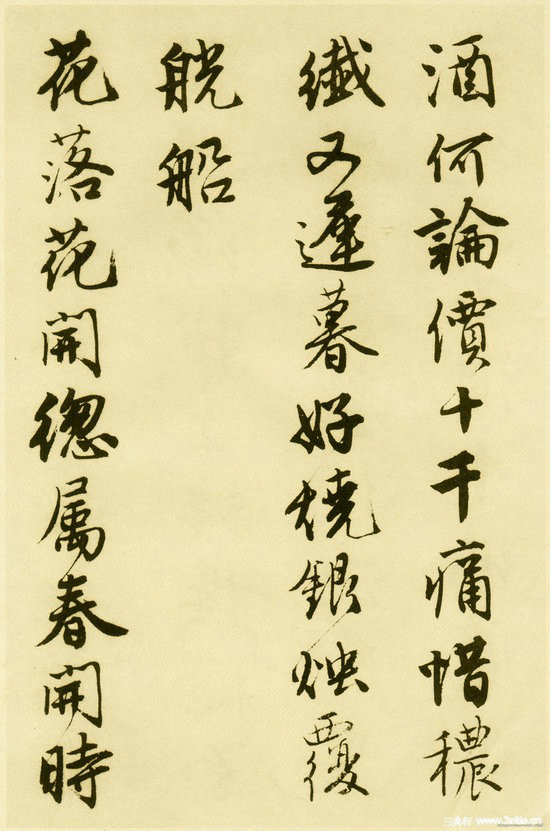 酒何論價十千痛惜穠
纖又遲暮好燒銀燭覆
觥船
花落花開總属春開時
www.3zitie.cn